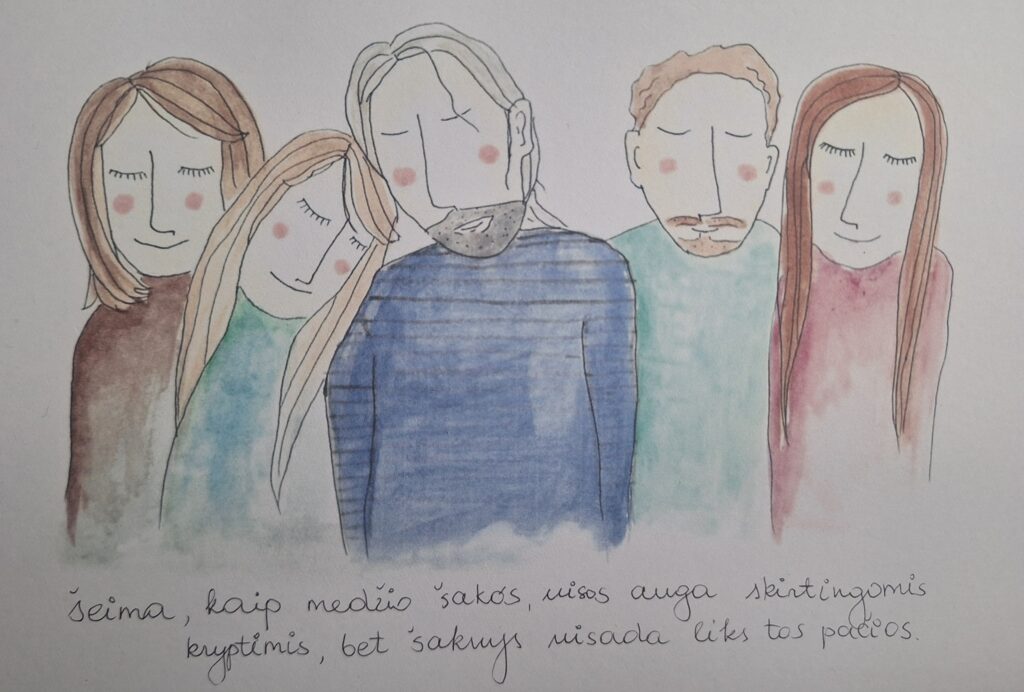 šeima, kaip medžio šakos, visos auga skirtingomis
kryptimis, bet šaknys visada liks tos pačios.